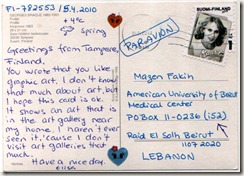 FI-782553 15.4.2010
+4°C
Spring
Greetings from Tampere,
Finland.
You wrote that you like
going art. I don't know
that much about art, but
I hope this card is ok.
It shows an art that is
in the art gallery near
my home. I haven't ever
seen it 'cause I don't
visit art galleries that
much.
Have a nice day.
PAR AVION
SUOMI FINLAND
Mazen Fakih
American University of Beirut
Medical Center
PO Box 11-0236 (152)
Riad El Solh Beirut
1107 2020
LEBANON